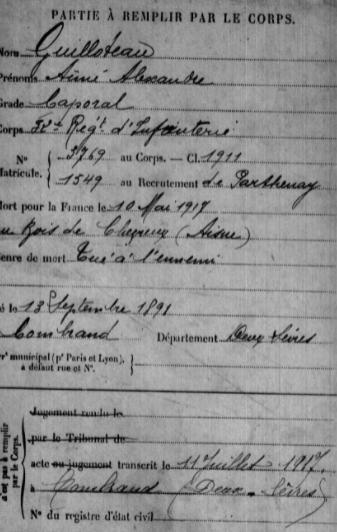 PARTIE À REMPLIR PAR LE CORPS.
Nom Guilloteau
Prénoms Aimé Alexandre
Grade Caporal
Corps Régt d'Infanterie
N° 5769 au Corps. — Cl. 1911
Matricule. 1549 au Recrutement de Parthenay
Mort pour la France le 10 Mai 1917
au Bois de Chevreux (Aisne)
Genre de mort Tué à l'ennemi
Né le 13 Septembre 1891
Combrand Département Deux Sèvres
Arr municipal (pr Paris et Lyon),
à défaut rue et N°.
Jugement rendu le
par le Tribunal de
acte ou jugement transcrit le 11 Juillet 1917.
à Combrand (Deux-Sèvres)
N° du registre d'état civil
n'est pas à remplir
par le Corps.